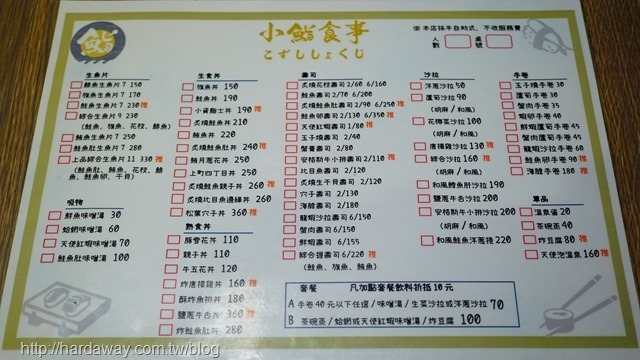 小鮨食事
こずししょくじ
※本店採半自助式、不收服務費
人數 桌號
生魚片
鯛魚生魚片7 150
旗魚生魚片7 170
鮭魚生魚片7 230 推
綜合生魚片9 230
(鮭魚、旗魚、花枝、鯛魚)
鮪魚生魚片7 250
鮭魚肚生魚片7 280
上品綜合生魚片11 330 推
(鮭魚肚、鮪魚、花枝、鯛魚、鮭魚卵、干貝)
吸物
鮮魚味噌湯 30
蛤蜊味噌湯 60
天使紅蝦味噌湯 70
鮭魚肚味噌湯 100
生食丼
旗魚丼 150
鮭魚丼 190
小資鮨士丼 190 推
炙燒鮭魚丼 210
鮪魚丼 220
鮭魚肚丼 240 推
鮪月蔥花丼 250
上町四丁目丼 250
炙燒鮭魚親子丼 260 推
炙燒比目魚邊緣丼 260
松葉穴子丼 360 推
熟食丼
豚曾花丼 110
親子丼 110
牛五花丼 120
炸唐揚雞丼 160 推
酥炸魚排丼 180
鹽蔥牛舌丼 360 推
炸鮭魚肚丼 280
壽司
炙燒花枝壽司 2/60 6/160
鮭魚壽司 2/70 6/200
炙燒鮭魚肚壽司 2/90 6/250 推
鮭魚卵壽司 2/130 6/350 推
天使紅蝦壽司 1/80 推
玉子燒壽司 2/40
蟹膏壽司 2/80
安格斯牛小排壽司 2/110 推
比目魚壽司 2/120
炙燒生干貝壽司 2/120
穴子壽司 2/130
海膽壽司 2/180
龍蝦沙拉壽司 6/150
蟹肉壽司 6/150
鮮蝦壽司 6/155
綜合握壽司 6/220 推
(鮭魚、旗魚、鮪魚)
沙拉
洋蔥沙拉 50
蘆筍沙拉 90
(胡麻/和風)
花椰菜沙拉 100
(胡麻/和風)
唐揚雞沙拉 130 推
綜合沙拉 160 推
(胡麻/和風)
和風鱈魚肝沙拉 190
鹽蔥牛舌沙拉 200
安格斯牛小排沙拉 200
(胡麻/和風)
和風鮭魚洋蔥捲 220
手卷
玉子燒手卷 30
蘆筍手卷 30
蟹肉手卷 35
蝦卵手卷 40
鮮蝦蘆筍手卷 45
龍蝦沙拉手卷 60
鮭魚卵手卷 90 推
海膽手卷 180 推
單品
溫泉蛋 20
茶碗蒸 40
炸豆腐 80 推
天使泡溫泉 160 推
套餐 凡加點套餐飲料折抵10元
A 手卷40元以下任選/味噌湯/生菜沙拉或洋蔥沙拉 70
B 茶碗蒸/蛤蜊或天使紅蝦味噌湯/炸豆腐 100
http://hardaway.com.tw/blog